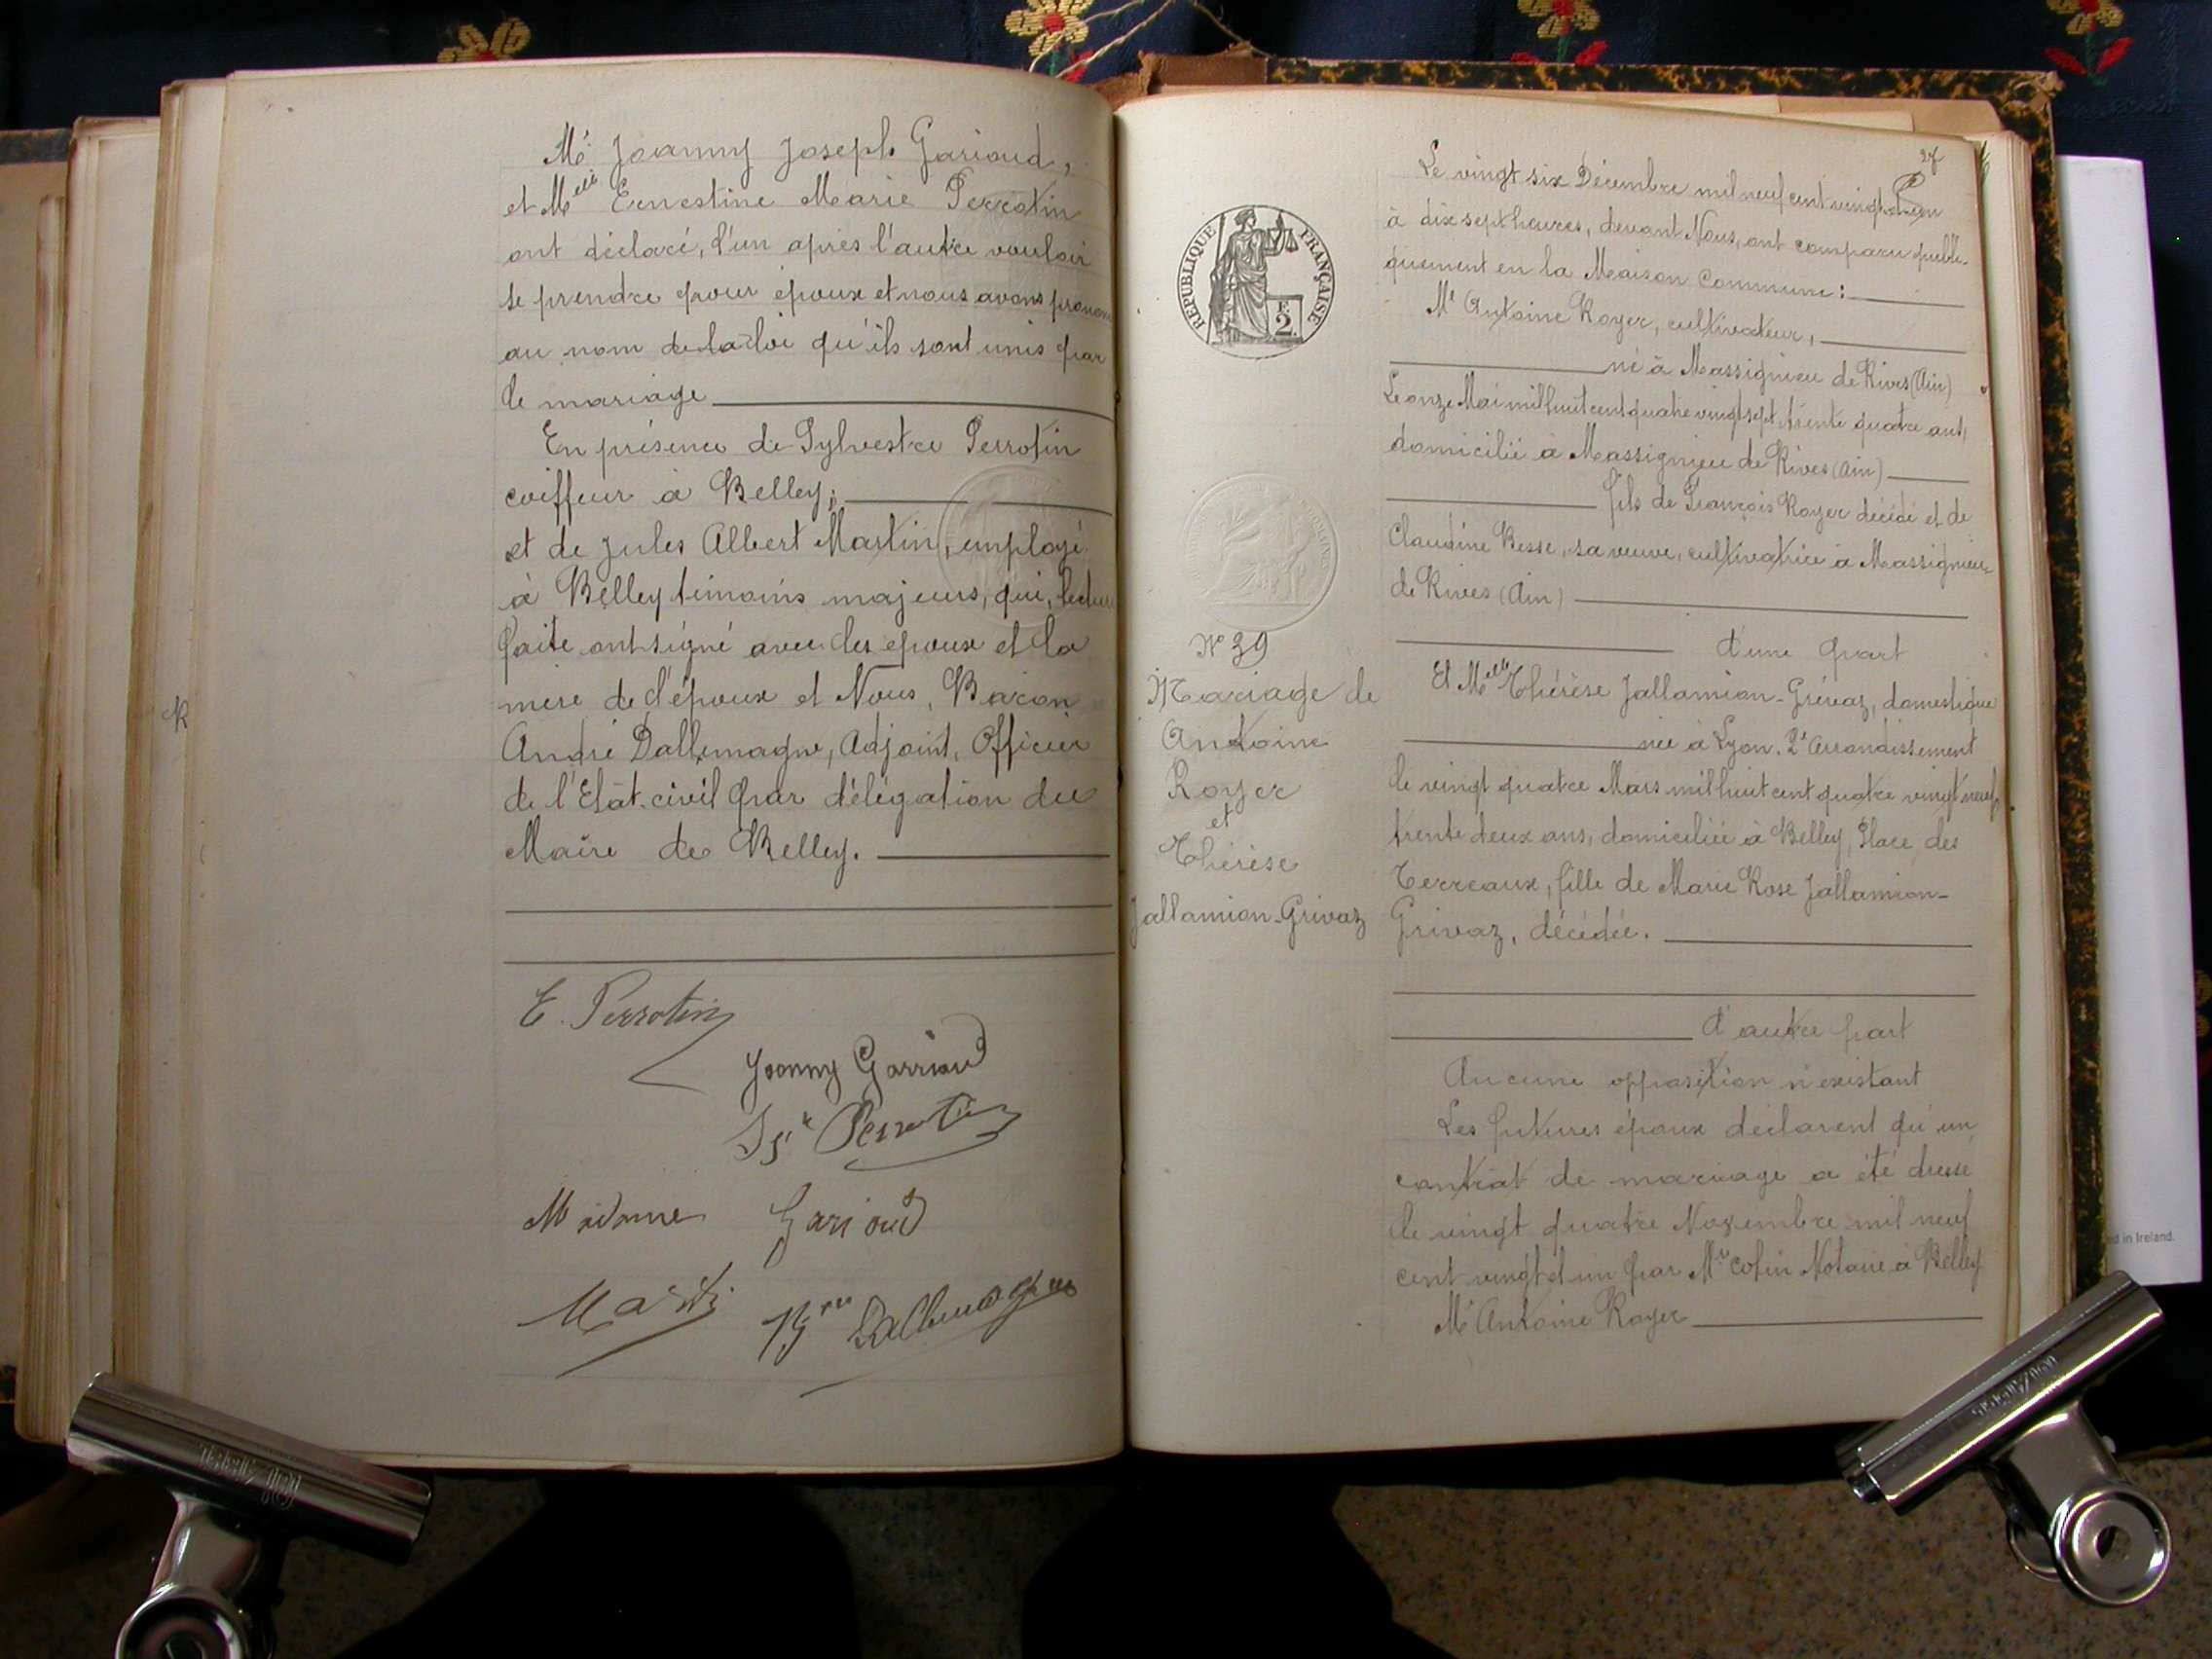 Mr Joanny Joseph Garioud,
et Melle Ernestine Marie Perrotin
ont déclaré, l'un après l'autre vouloir
se prendre pour époux et nous avons
au nom de la loi qu'ils sont unis par
le mariage
En présence de Sylvestre Perrotin
coiffeur à Belley;
et de Jules Albert Martin, employé
à Belley témoins majeurs, qui, lecture
faite ont signé avec les epoux et la
mère de l'époux et Nous, Baron
André Dallemagne, Adjoint, Officier
de l'Etat-civil par délégation du
Maire de Belley.
E. Perrotin
Joanny Garrioud
Perrotin
Madame Garioud
Martin
Bon Dallemagne
27
Le vingt six Décembre mil neuf cent vingt et un
à dix sept heures, devant Nous, ont comparu publi-
quement en la Maison Commune:
REPUBLIQUE FRANÇAISE
F. 2.
Mr Antoine Royer, cultivateur,
né à Massignieu de Rives (Ain)
Le onze Mai mil huit cent quatre vingt sept, trente quatre ans,
domicilié à Massignieu de Rives (Ain)
fils de François Royer décédé et de
Claudine Besse, sa veuve, cultivatrice à Massignieu
de Rives (Ain)
d'une part
No 39
Mariage de
Antoine
Royer
et
Thérèse
Jallamion-Grivaz
Et Melle Thérèse Jallamion-Grivaz, domestique
née à Lyon. 2e Arrondissement
le vingt quatre Mars mil huit cent quatre vingt neuf,
trente deux ans, domiciliée à Belley, Place des
Terreaux, fille de Marie Rose Jallamion-
Grivaz, décédée.
d'autre part
Aucune opposition n'existant
Les futures époux déclarent qu'un
contrat de mariage a été dressé
le vingt quatre Novembre mil neuf
cent vingt et un par Me Colin Notaire à Belley
Mr Antoine Royer
in Ireland.